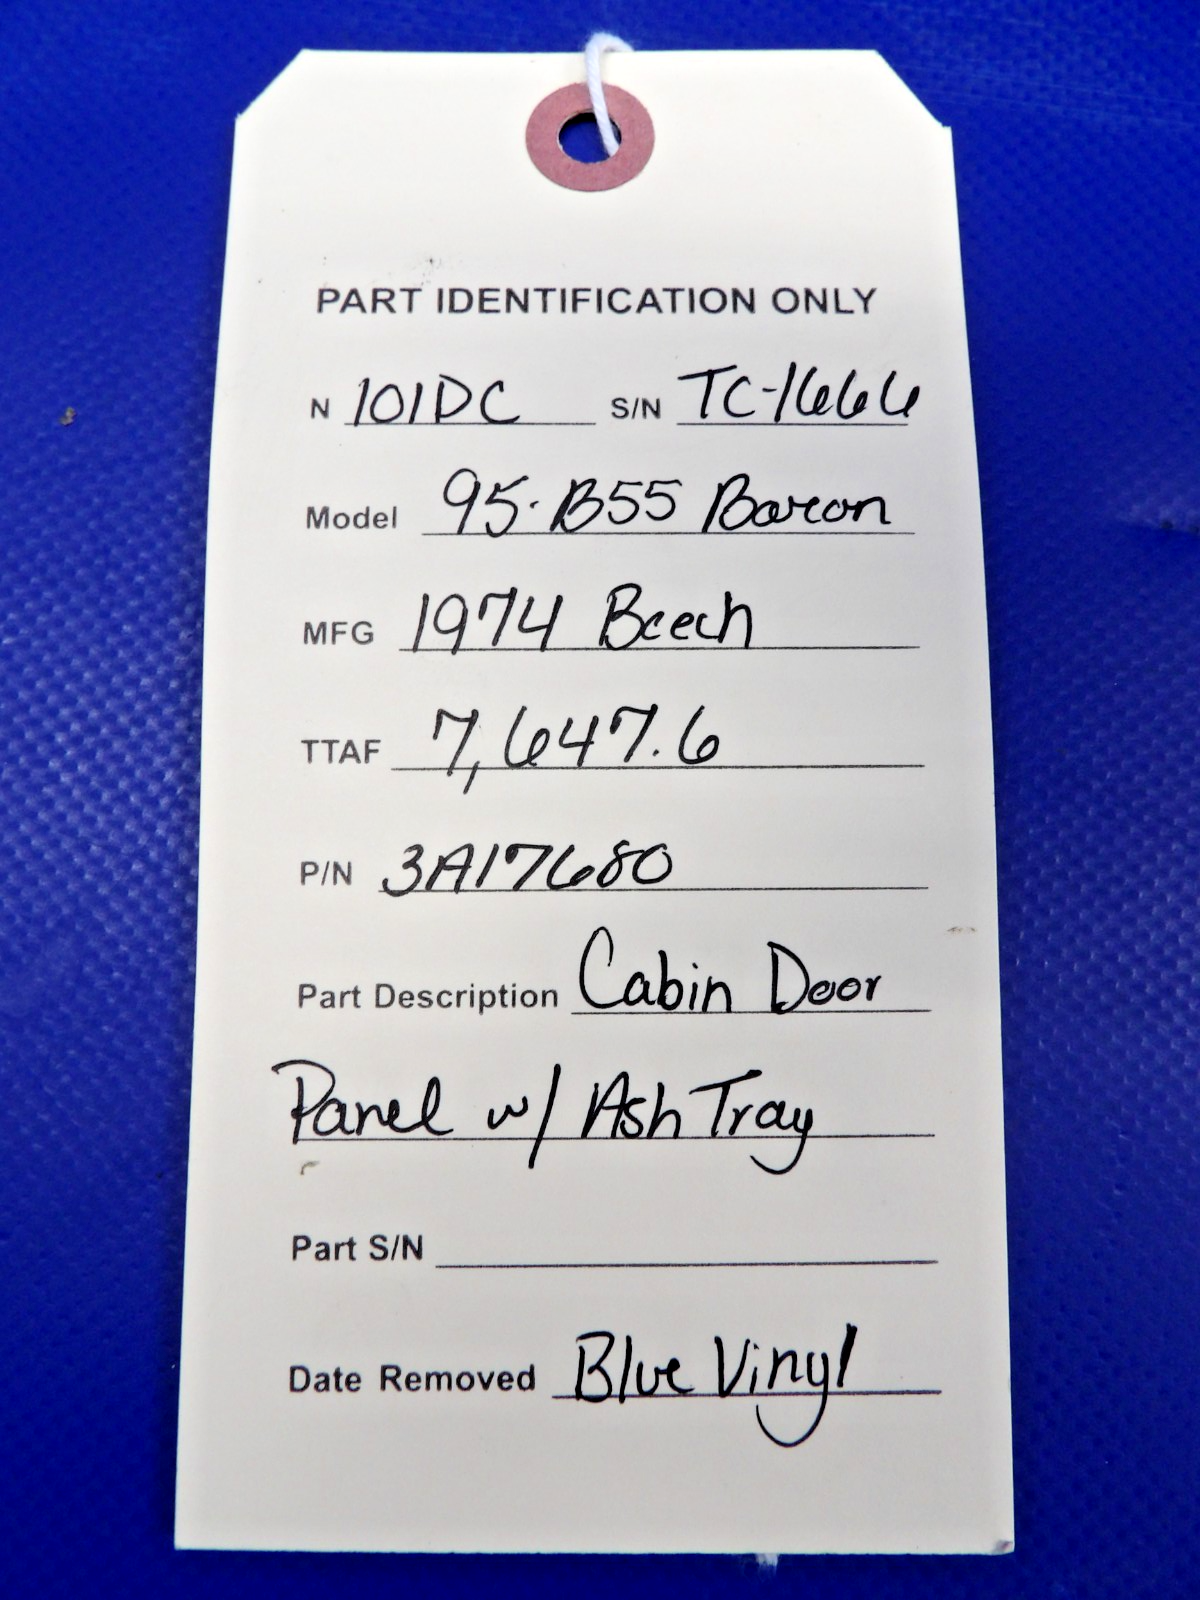 PART IDENTIFICATION ONLY
N 101DC S/N TC-1666
Model 95-B55 Baron
MFG 1974 Beech
TTAF 7,647.6
P/N 3A17680
Part Description Cabin Door
Panel w/ Ash Tray
Part S/N
Date Removed Blue Vinyl